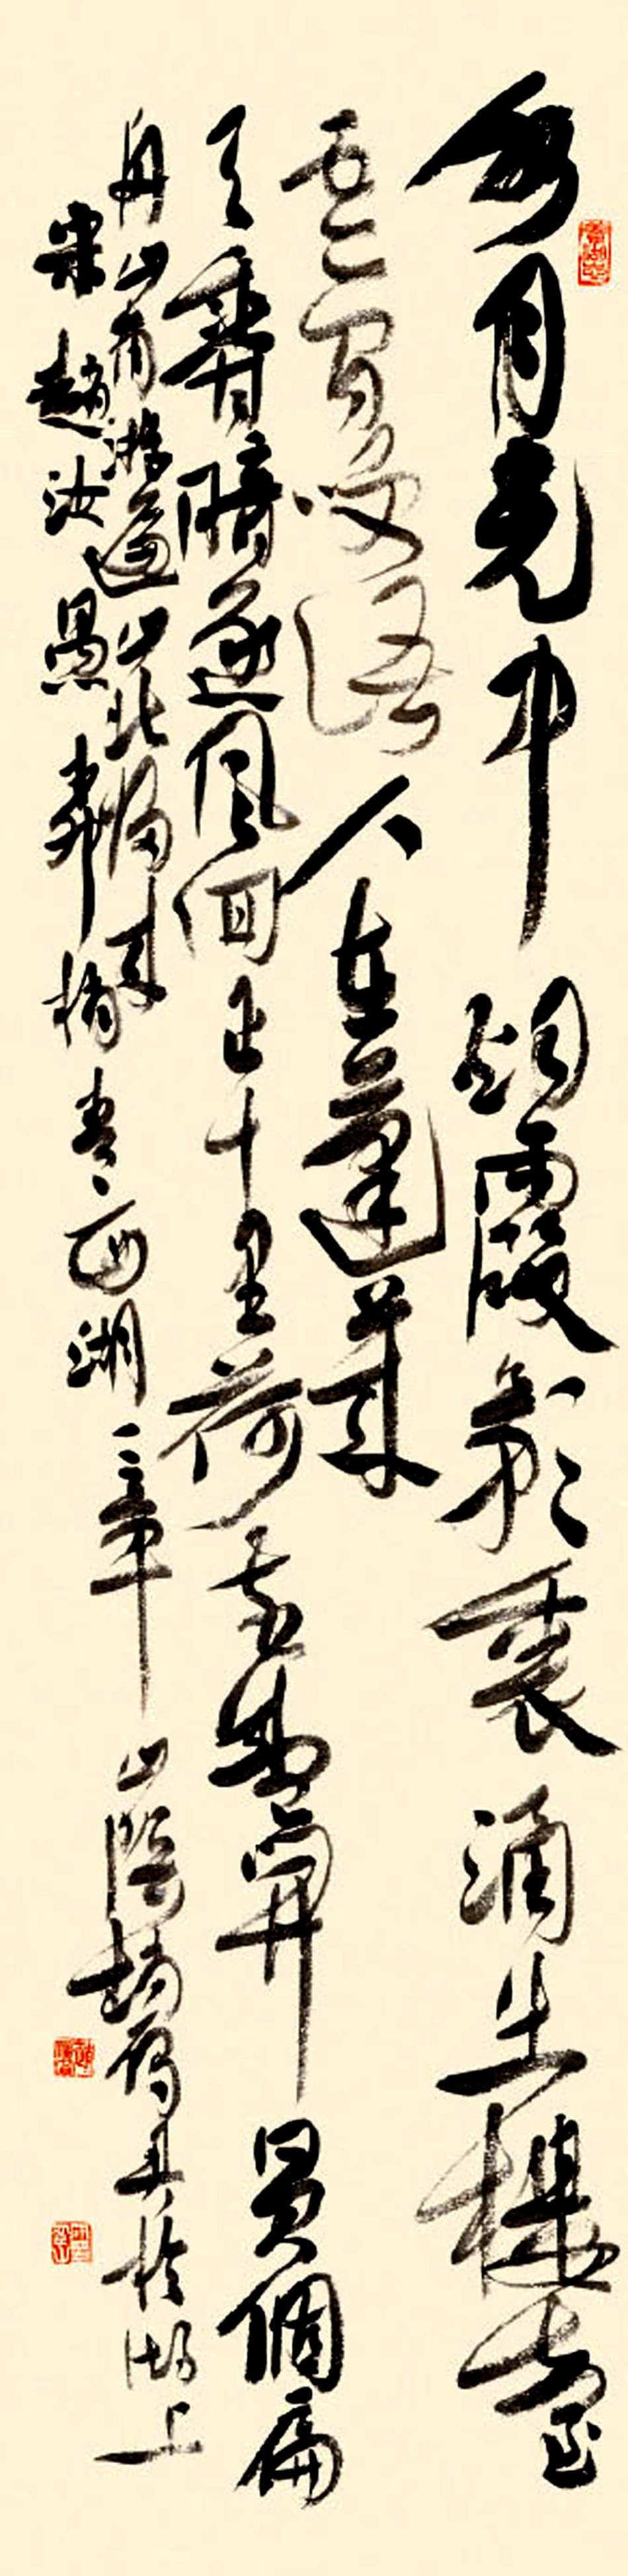 水月光中烟霞影裏涌出樓臺
雲間笑語人在蓬萊
天香暗逐風回正十里荷花盛開買個扁
舟山南游遍山北歸來
宋趙汝愚柳梢青西湖一章山陰趙於湖上